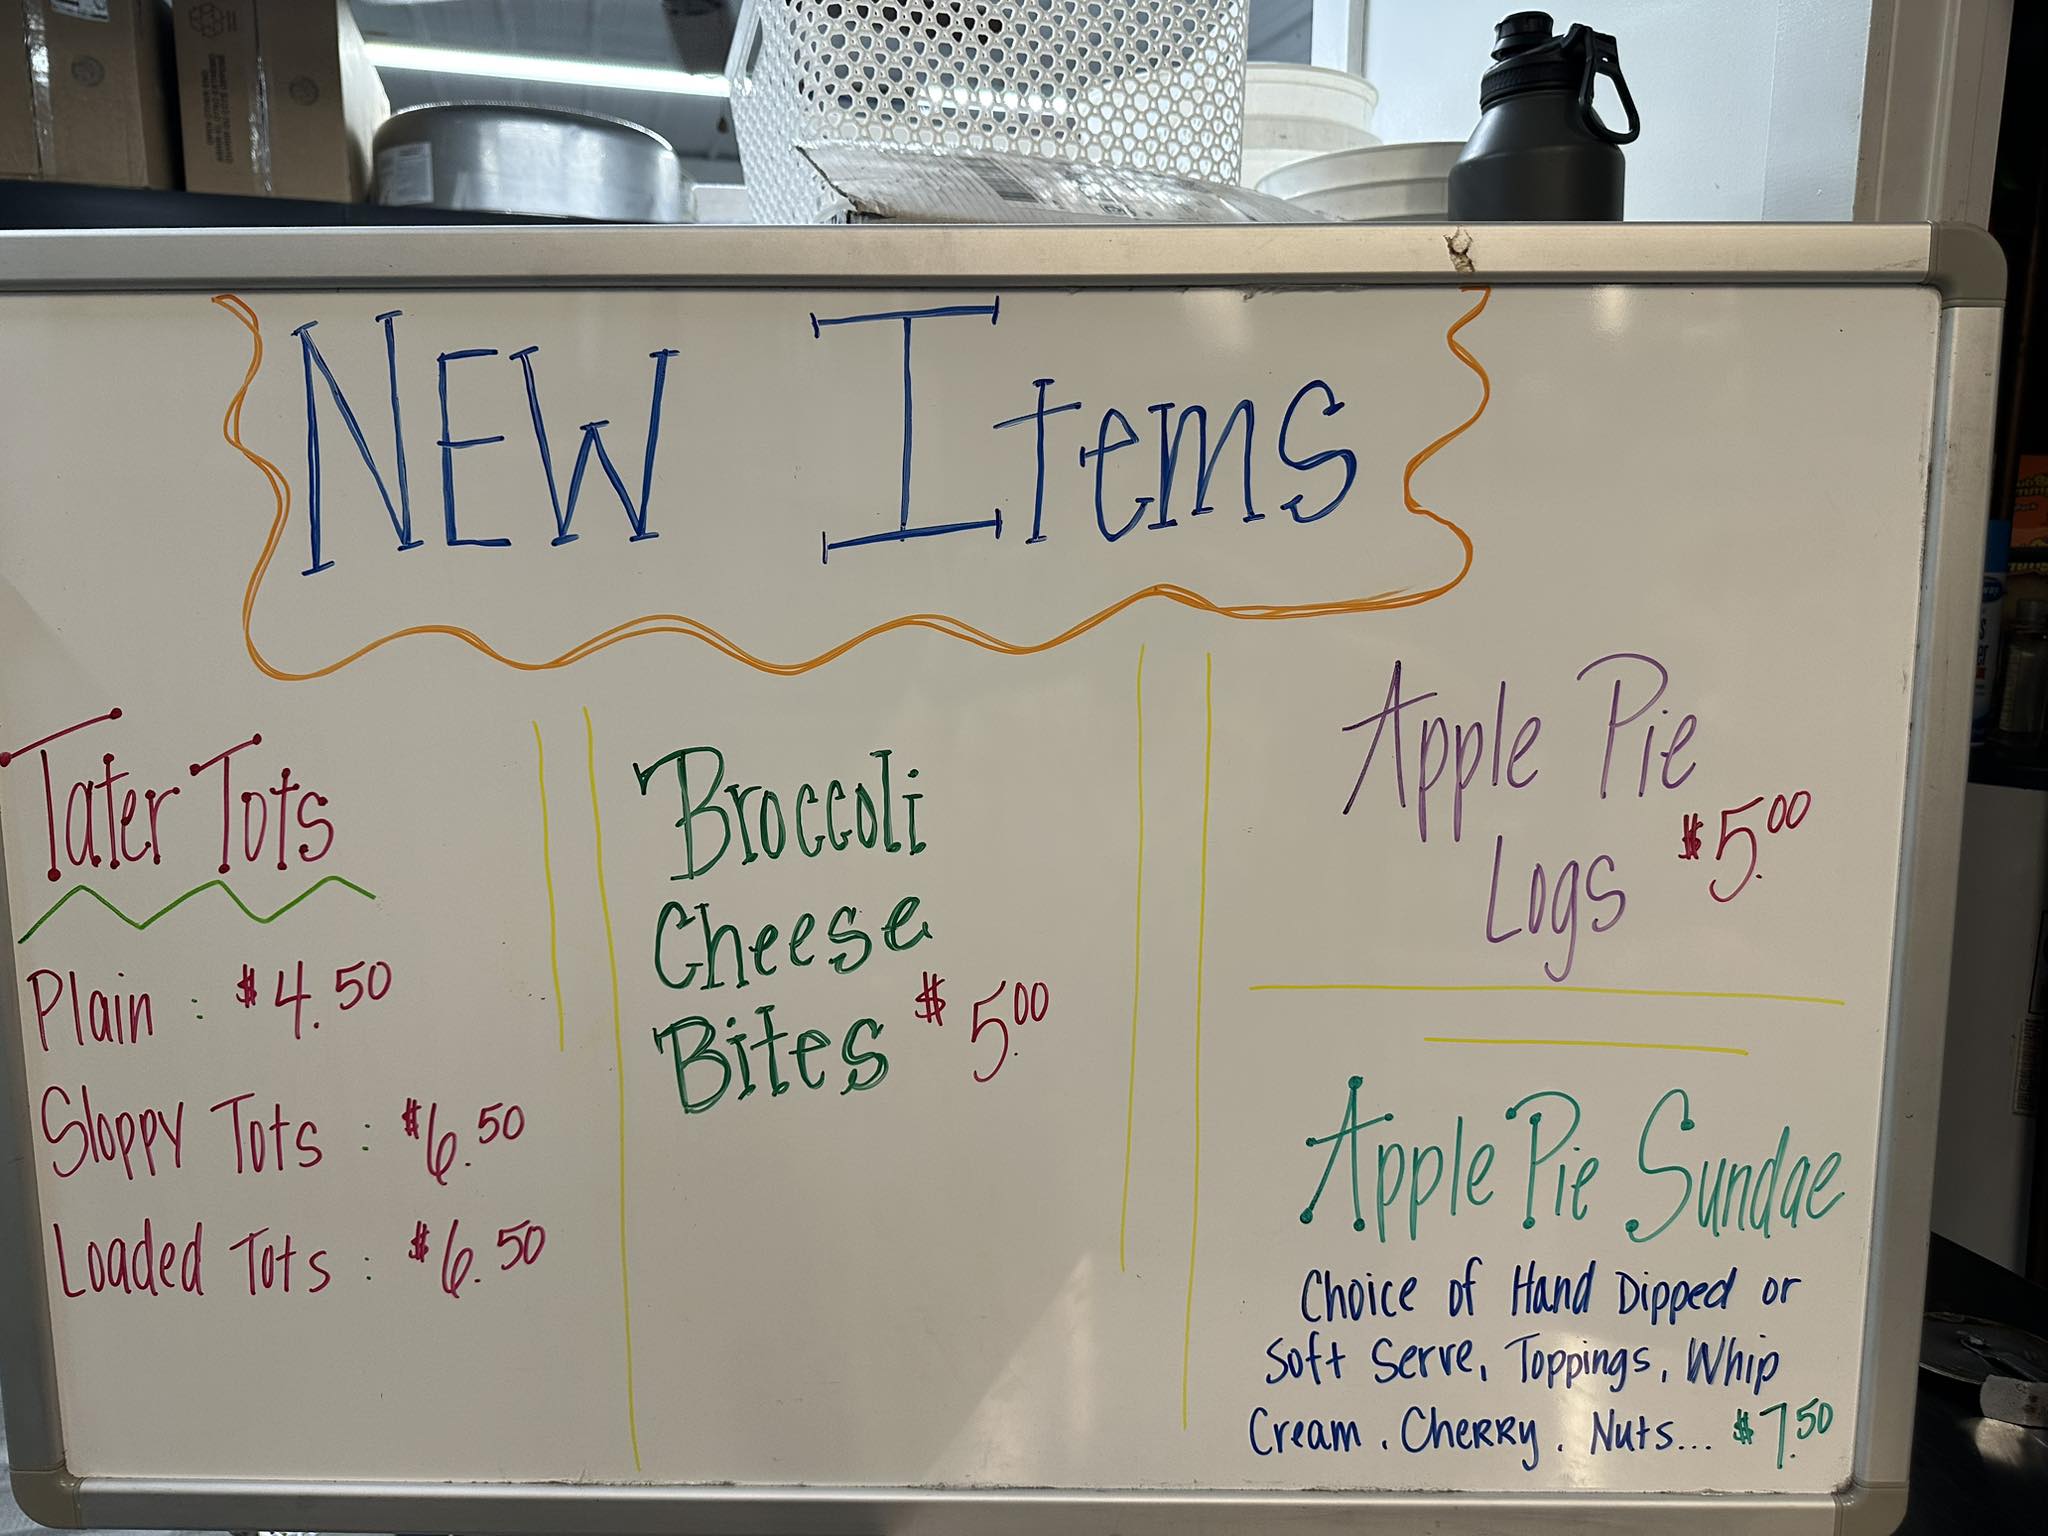 NEW Items
Tater Tots
Plain : $4.50
Sloppy Tots : $6.50
Loaded Tots : $6.50
Broccoli
Cheese
Bites $5.00
Apple Pie
Logs $5.00
Apple Pie Sundae
Choice of Hand Dipped or
Soft Serve, Toppings, Whip
Cream, Cherry, Nuts... $7.50